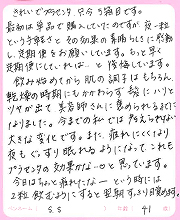 きれいでプラセンタ、只今5箱目です。
最初は単品で購入していたのですが、夜一粒
という手軽さと、その効果の素晴らしさに感動
し、定期便をお願いしています。もっと早く
定期便にしていれば…と後悔しています。
飲み始めてから肌の調子はもちろん、
乾燥の時期にもかかわらず髪にハリと
ツヤが出て美容師さんに褒められるように
なりました。今までの私では考えられない
大きな変化です。また、疲れにくくなり
夜もぐっすり眠れるようになって、これも
プラセンタの効果かな…と思っています。
今日はちょっと疲れたな…という時には
2粒飲むようにすると翌朝すっきり目覚めます。
S.S
41